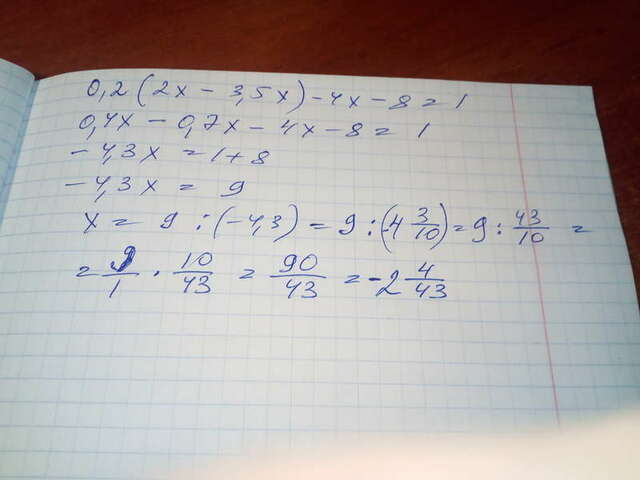 0,2(2x - 3,5x) - 4x - 8 = 1
0,4x - 0,7x - 4x - 8 = 1
- 4,3x = 1 + 8
- 4,3x = 9
x = 9 : (-4,3) = 9 : (-4 3/10) = 9 : 43/10 =
= 9/1 · 10/43 = 90/43 = -2 4/43